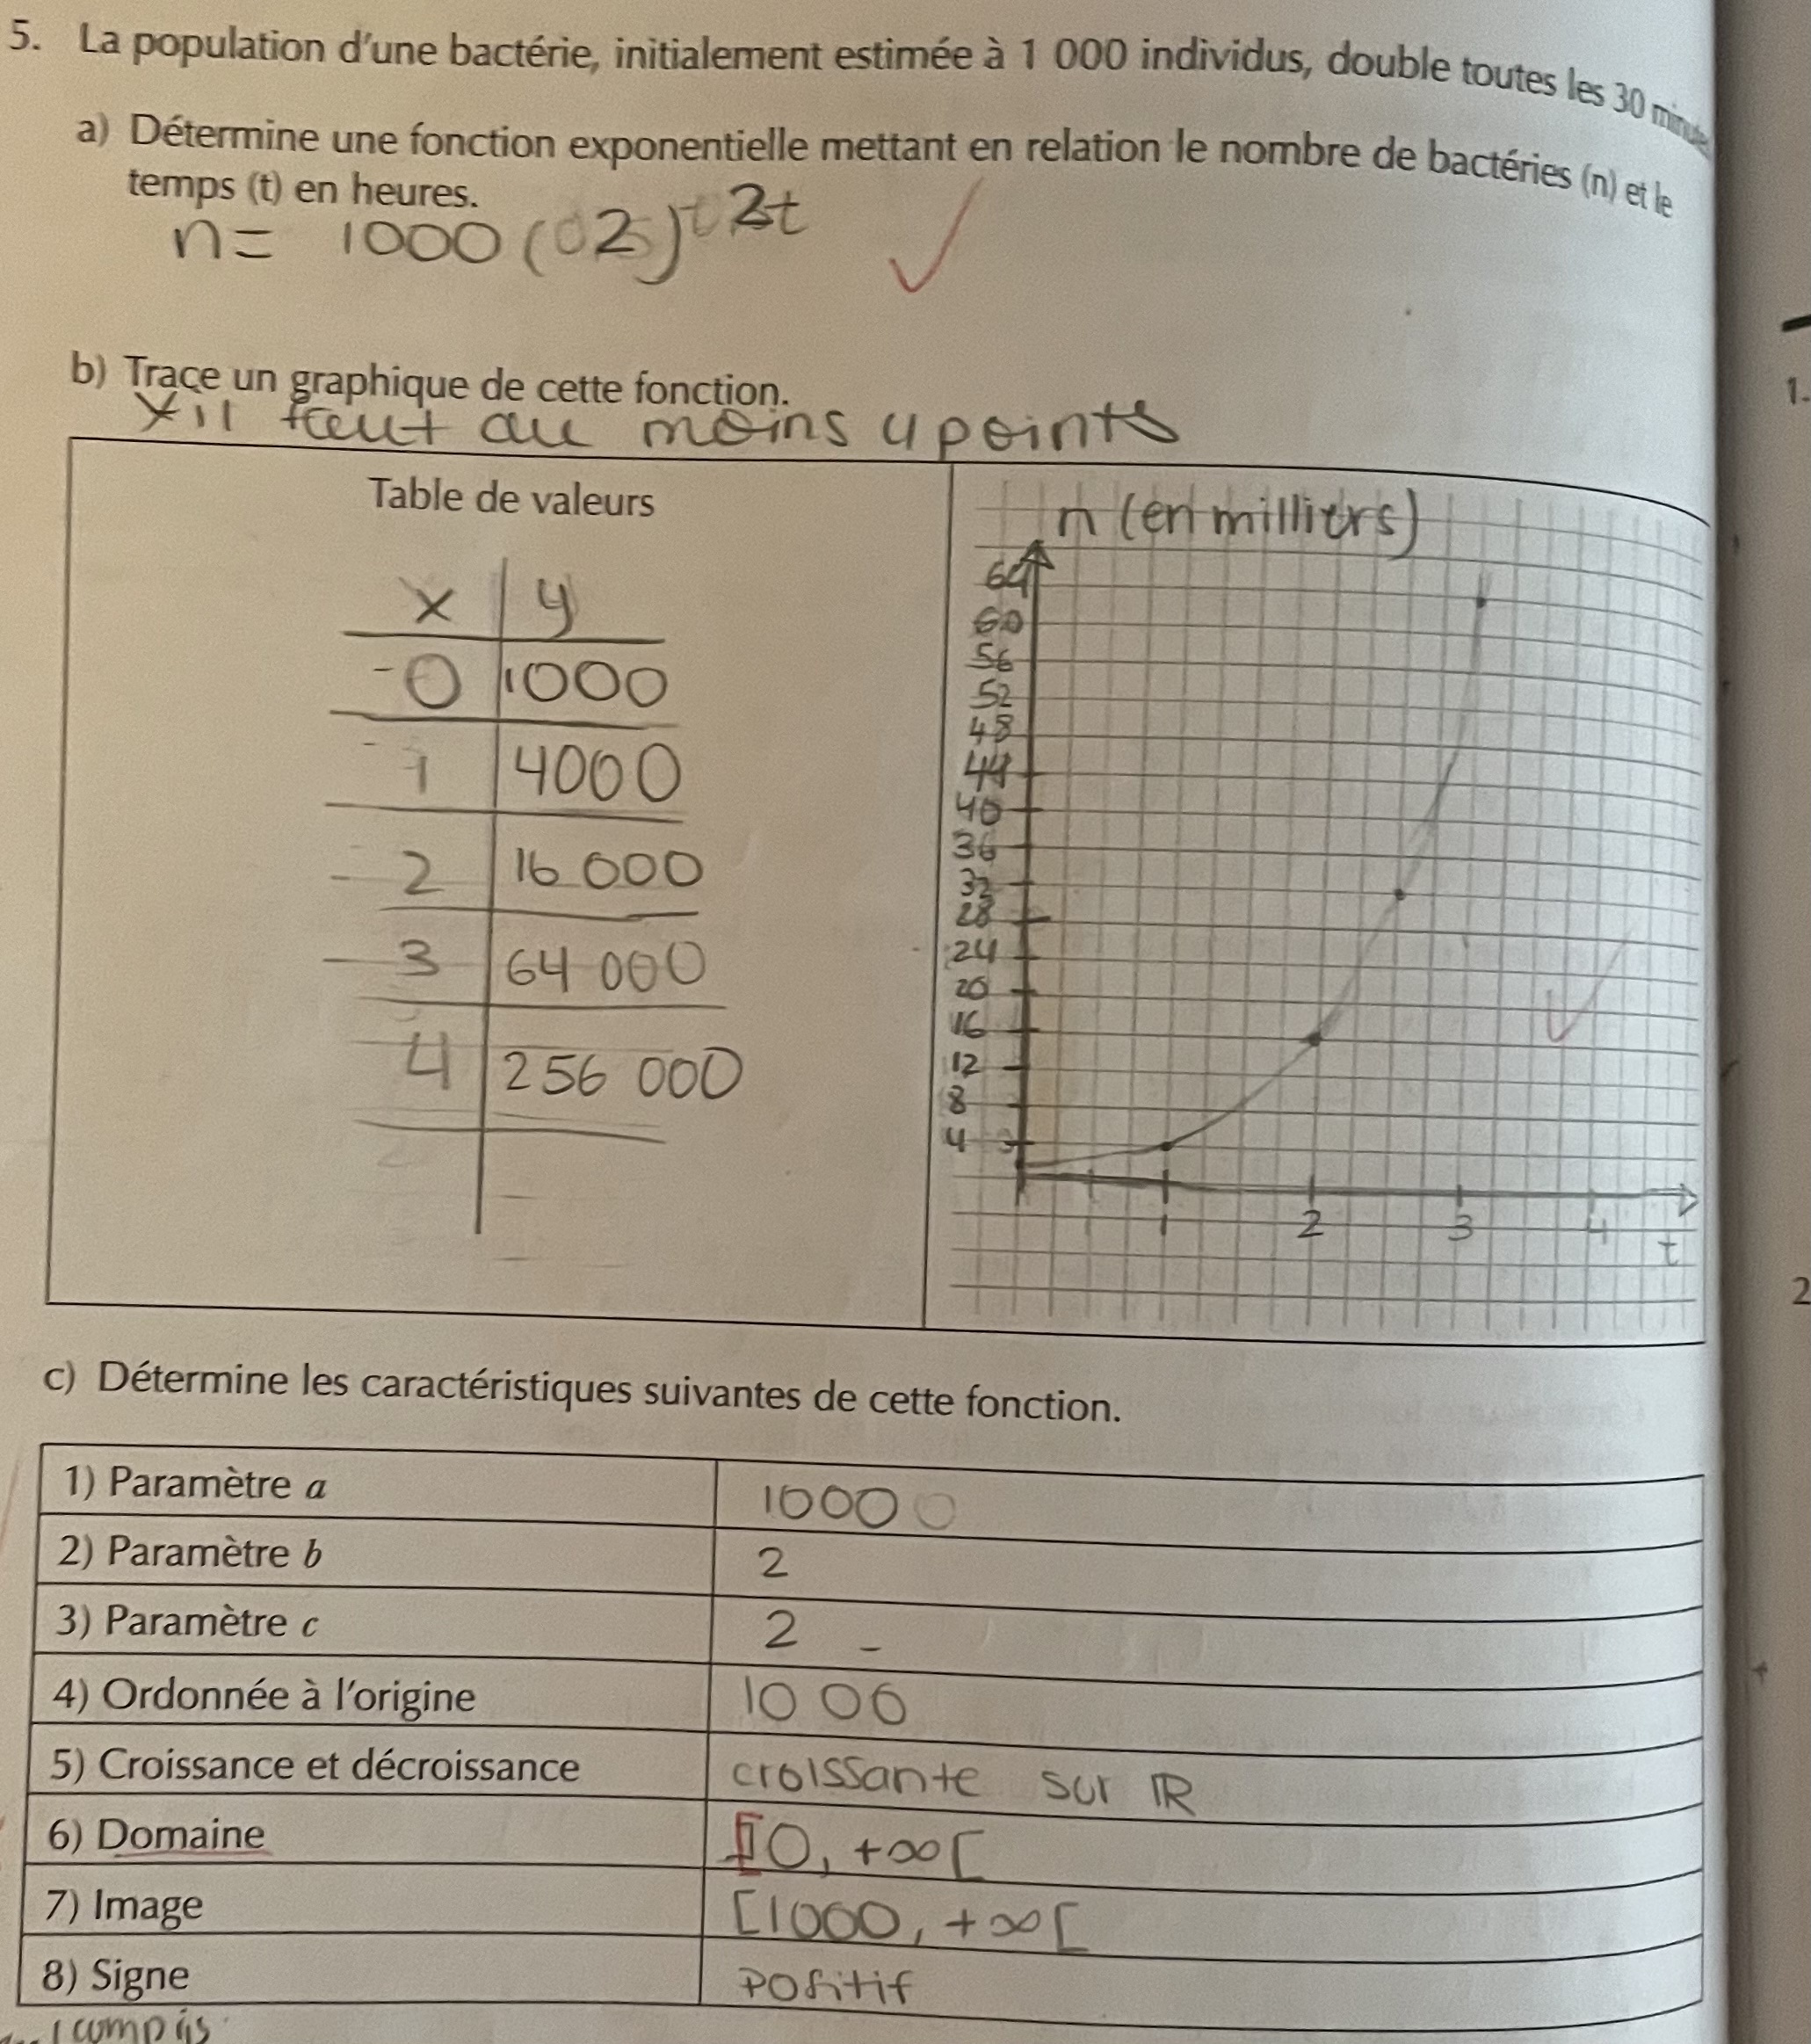 5. La population d'une bactérie, initialement estimée à 1 000 individus, double toutes les 30 minutes
a) Détermine une fonction exponentielle mettant en relation le nombre de bactéries (n) et le
temps (t) en heures.
n = 1000 (2)^2t
b) Trace un graphique de cette fonction.
* il faut au moins 4 points
Table de valeurs
x | y
0 | 1000
1 | 4000
2 | 16 000
3 | 64 000
4 | 256 000
n (en milliers)
64
60
56
52
48
44
40
36
32
28
24
20
16
12
8
4
1 2 3 4
t
c) Détermine les caractéristiques suivantes de cette fonction.
1) Paramètre a 1000
2) Paramètre b 2
3) Paramètre c 2
4) Ordonnée à l'origine 1000
5) Croissance et décroissance croissante sur ℝ
6) Domaine [0, +∞[
7) Image [1000, +∞[
8) Signe positif
1.
2